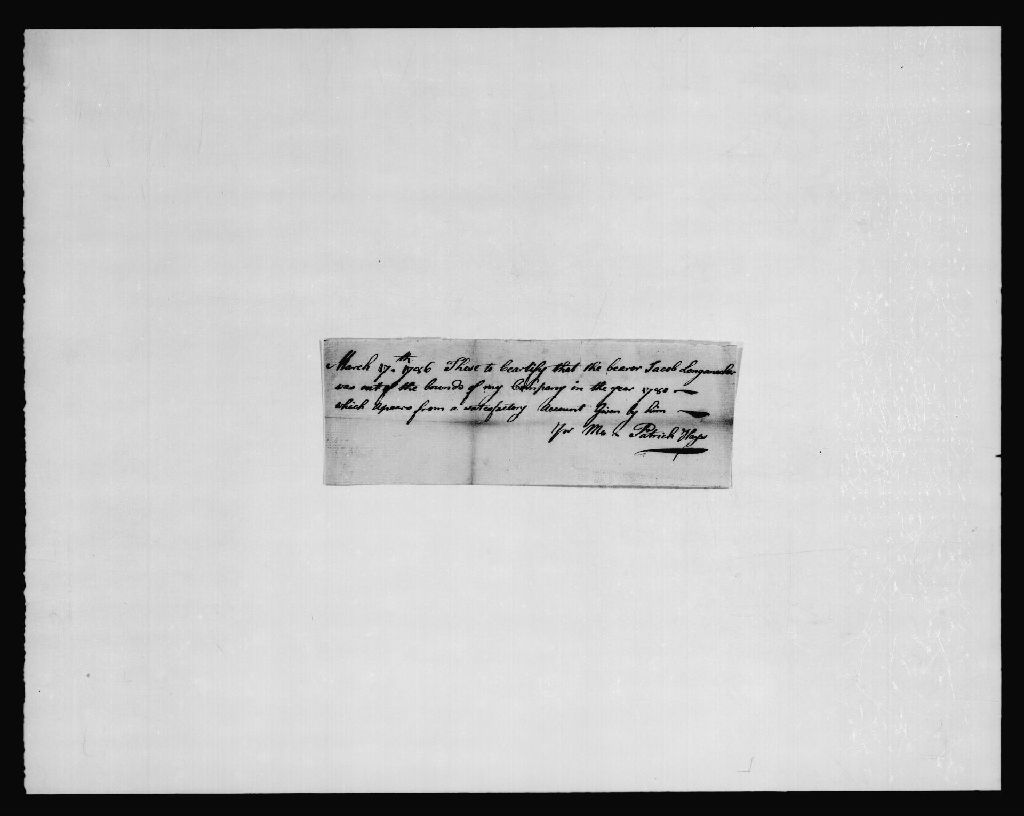 March 17.th 1786 These to Ceartify that the bearer Jacob Longanacker
was out of the bounds of my Company in the year 1780
which Apears from a satesfactory Account Given by him
Patrick Hays